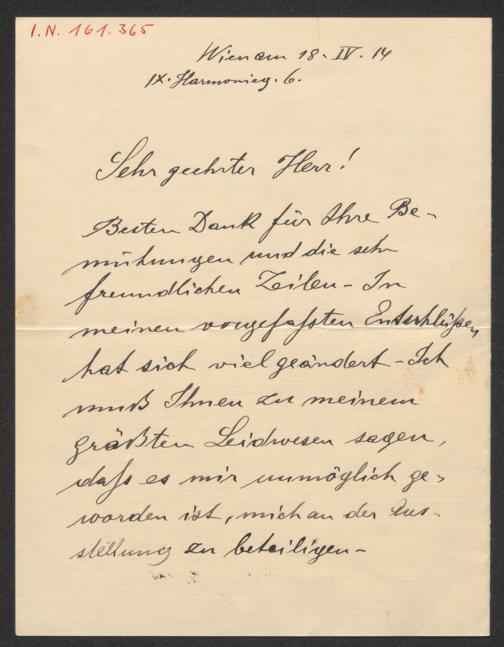 I.N. 161.365
Wien am 18. IV. 14
IX. Harmonieg. 6.
Sehr geehrter Herr!
Besten Dank für Ihre Be-
mühungen und die sehr
freundlichen Zeilen - In
meinen vorgefaßten Entschlüßen,
hat sich viel geändert - Ich
muß Ihnen zu meinem
größten Leidwesen sagen,
daß es mir unmöglich ge-
worden ist, mich an der Aus-
stellung zu beteiligen -